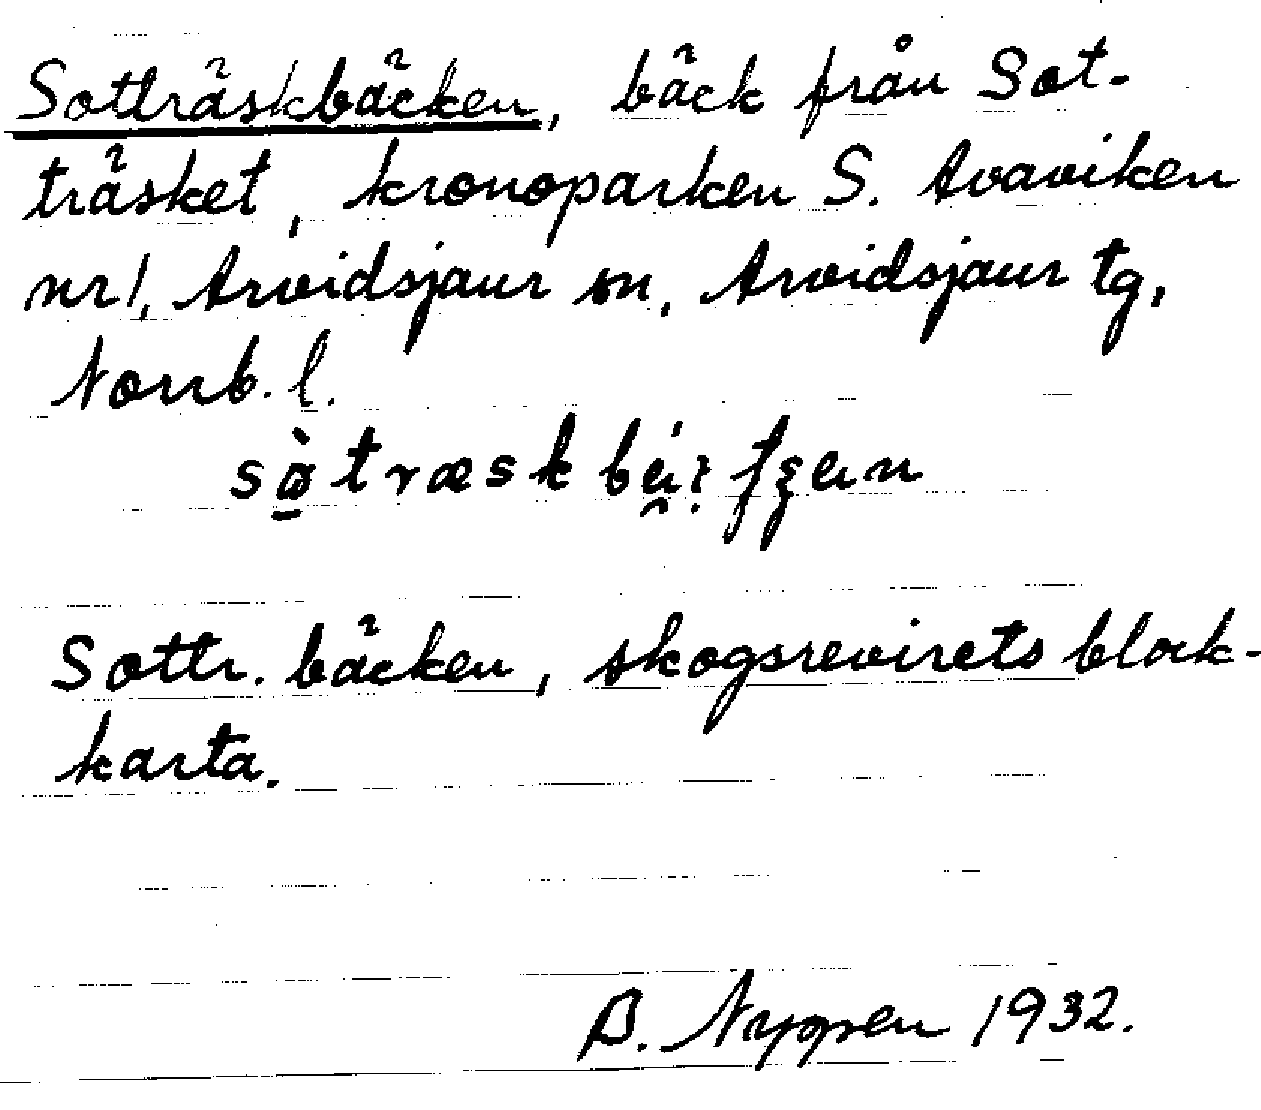 Sotträskbäcken, bäck från Sot-
träsket, kronoparken S. Avaviken
nr 1, Arvidsjaur sn, Arvidsjaur tg,
Norrb. l.
Sottr. bäcken, skogsrevirets block-
karta.
1932.